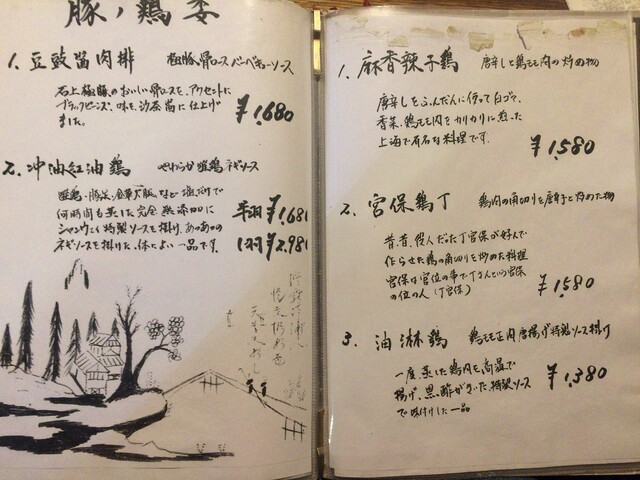 豚ノ鶏
1. 豆豉醤肉排 極豚骨ロース バーベキューソース
石上極豚のおいしい骨ロースを、アクセントに
ブラックビーンズ、味を、沙茶醤に仕上げ
ました。
¥1,680
2. 沖油紅油鶏 やわらか雌鶏ネギソース
雌鶏・豚足・金華大腿、など
何時間も煮した完全無添加に
特製ソースを掛け、あつあつの
ネギソースを掛けた、体によい一品です。
半羽 ¥1,680
1羽 ¥2,980
1. 麻香辣子鶏 唐辛しと鶏モモ肉の炒め物
唐辛しをふんだんに使って白ゴマ、
香菜、鶏モモ肉をカリカリに煮った
上海で有名な料理です。
¥1,580
2. 宮保鶏丁 鶏肉の角切りを唐辛子と炒めた物
昔、昔、役人だった丁宮保が好んで
作らせた鶏の角切りを炒めた料理
宮保は官位の事で丁さんという宮保
の位の人(丁宮保)
¥1,580
3. 油淋鶏 鶏モモ正肉唐揚げ特製ソース掛け
一度、蒸した鶏肉を高温で
揚げ、黒酢がきいた特製ソース
で味付けした一品
¥1,380